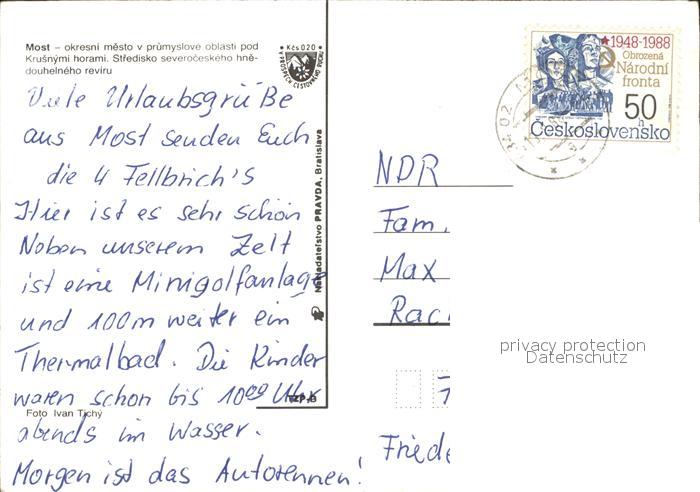 Most – okresní město v průmyslové oblasti pod
Krušnými horami. Středisko severočeského hně-
douhelného revíru
Kčs 0,20
Viele Urlaubsgrüße
aus Most senden Euch
die 4 Fellbrich's
Hier ist es sehr schön
Neben unserem Zelt
ist eine Minigolfanlage
und 100m weiter ein
Thermalbad. Die Kinder
waren schon bis 10 00 Uhr
abends im Wasser.
Morgen ist das Autorennen!
Foto Ivan Tichý
Nakladateľstvo PRAVDA, Bratislava
1948-1988
Obrozená
Národní
fronta
50
h
Československo
NDR
Fam.
Max
privacy protection
Datenschutz
7
Friede